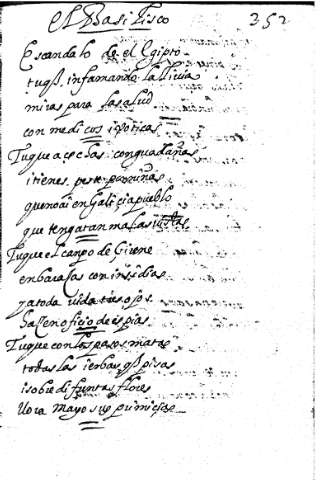 El Basilisco 352
Escandalo de el Egipto
tu q̃ infamando la Livia
miras para la salud
con medicos ipoticas.
Tu que acechas con guadañas
i tienes peste por niñas
que no ai en Galicia pueblo
que tenga tan malas
Tu que el campo de Cirene
enbaraças con insidias
ya toda vida tus ojos
haçen oficio de espias
Tu que con los pasos matas
todas las ierbas q̃ pisas
i sobre difuntas flores
llora Mayo sus primicias